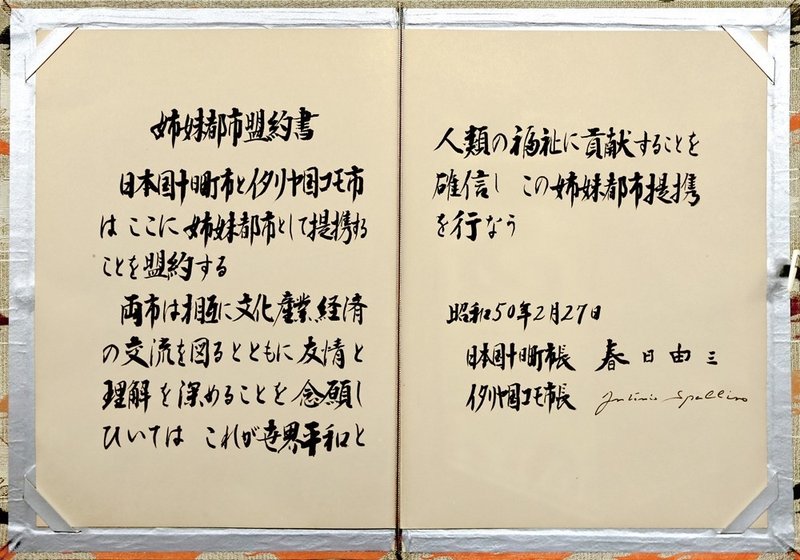 姉妹都市盟約書
日本国十日町市とイタリヤ国コモ市
は ここに 姉妹都市として提携する
ことを盟約する
両市は相互に文化産業経済
の交流を図るとともに友情と
理解を深めることを念願し
ひいては これが世界平和と
人類の福祉に貢献することを
確信し この姉妹都市提携
を行なう
昭和50年2月27日
日本国十日町市長 春日由三
イタリヤ国コモ市長 Antonio Spallino